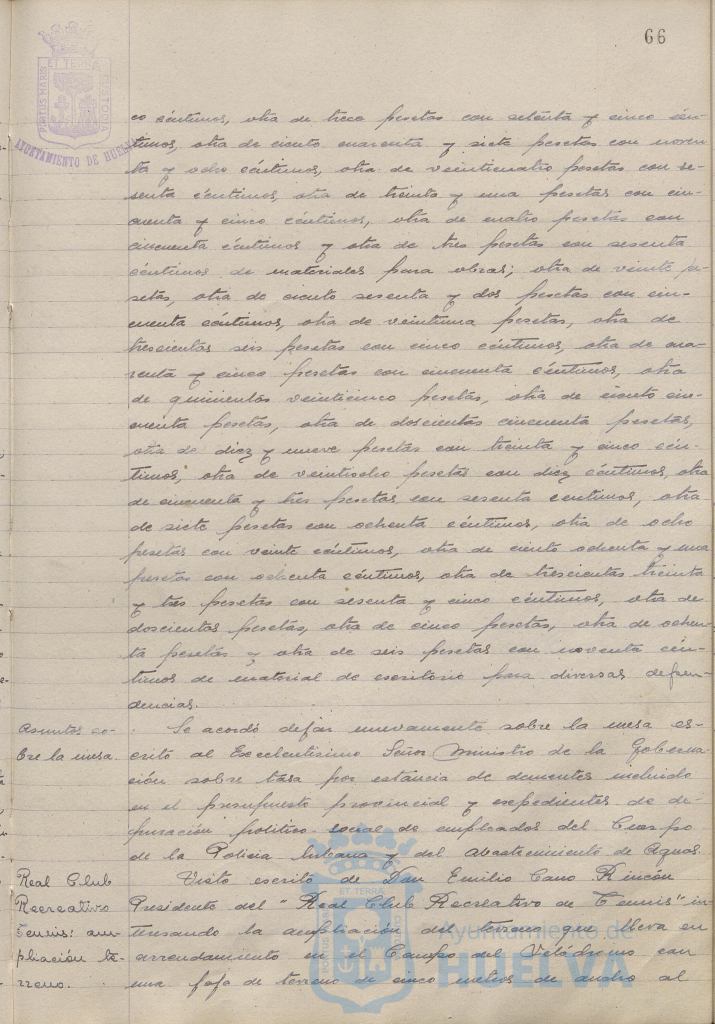 66
PORTUS MARIS ET TERRAE CUSTODIA
AYUNTAMIENTO DE HUELVA
co céntimos, otra de trece pesetas con setenta y cinco cén-
timos, otra de ciento cuarenta y siete pesetas con noven-
ta y ocho céntimos, otra de veinticuatro pesetas con se-
senta céntimos, otra de treinta y una pesetas con cin-
cuenta y cinco céntimos, otra de cuatro pesetas con
cincuenta céntimos y otra de tres pesetas con sesenta
céntimos de materiales para obras; otra de veinte pe-
setas, otra de ciento sesenta y dos pesetas con cin-
cuenta céntimos, otra de veintiuna pesetas, otra de
trescientas seis pesetas con cinco céntimos, otra de cua-
renta y cinco pesetas con cincuenta céntimos, otra
de quinientas veinticinco pesetas, otra de ciento cin-
cuenta pesetas, otra de doscientas cincuenta pesetas,
otra de diez y nueve pesetas con treinta y cinco cén-
timos, otra de veintiocho pesetas con diez céntimos, otra
de cincuenta y tres pesetas con sesenta centimos, otra
de siete pesetas con ochenta céntimos, otra de ocho
pesetas con veinte céntimos, otra de ciento ochenta y una
pesetas con ochenta céntimos, otra de trescientas treinta
y tres pesetas con sesenta y cinco céntimos, otra de
doscientas pesetas, otra de cinco pesetas, otra de ochen-
ta pesetas y otra de seis pesetas con noventa cén-
timos de material de escritorio para diversas depen-
dencias.
Asuntos so-
bre la mesa.
Se acordó dejar nuevamente sobre la mesa es-
crito al Excelentísimo Señor Ministro de la Goberna-
ción sobre tasa por estancia de dementes incluido
en el presupuesto provincial y expedientes de de-
puración político-social de empleados del Cuerpo
de la Policía Urbana y del Abastecimiento de Aguas.
Real Club
Recreativo
Tennis: am-
pliación te-
rreno.
Visto escrito de Don Emilio Cano Rincón
Presidente del "Real Club Recreativo de Tennis" in-
teresando la ampliación del terreno que lleva en
arrendamiento en el Campo del Velódromo con
una faja de terreno de cinco metros de ancho al
PORTUS MARIS ET TERRAE CUSTODIA
Ayuntamiento de
HUELVA